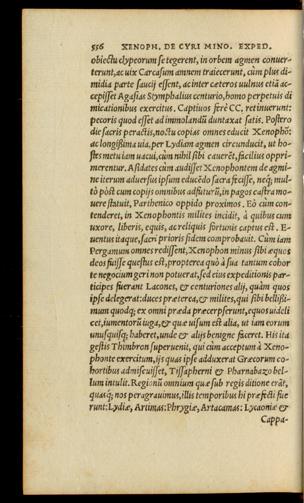 556 XENOPH. DE CYRI MINO. EXPED.
obiectu clypeorum se tegerent, in orbem agmen conuer-
terunt, ac uix Carcasum amnem traiecerunt, cùm plus di-
midia parte saucij essent, ac inter ceteros uulnus etiā ac-
cepisset Agasias Stymphalius centurio, homo perpetuis di
micationibus exercitus. Captiuos ferè CC, retinuerunt:
pecoris quod esset ad immolandū duntaxat satis. Postero
die sacris peractis, noctu copias omnes educit Xenophō:
ac longißima uia, per Lydiam agmen circunducit, ut ho-
stes metu iam uacui, cùm nihil sibi cauerēt, facilius oppri-
merentur. Asidates cùm audisset Xenophontem de agmi-
ne iterum aduersus ipsum educēdo sacra fecisse, neq; mul-
tò pòst cum copijs omnibus adfuturū, in pagos castra mo-
uere statuit, Parthenico oppido proximos. Eò cùm con-
tenderet, in Xenophontis milites incidit, à quibus cum
uxore, liberis, equis, ac reliquis fortunis captus est. E-
uentus itaque, sacri prioris fidem comprobauit. Cùm iam
Pergamum omnes redissent, Xenophon minus sibi æquos
deos fuisse questus est, propterea quòd à sua tantum cohor
te negocium geri non potuerat, sed eius expeditionis par-
ticipes fuerant Lacones, & centuriones alij, quàm quos
ipse delegerat: duces præterea, & milites, qui sibi bellißi-
mum quodq; ex omni præda præcerpserunt, equos uideli
cet, iumentorū iuga, & quæ uisum est alia, ut iam eorum
unusquisq; haberet, unde & alijs benignè faceret. His ita
gestis Thimbron superuenit, qui cùm acceptum à Xeno-
phonte exercitum, ijs quas ipse adduxerat Græcorum co-
hortibus admiscuisset, Tissapherni & Pharnabazo bel-
lum intulit. Regionū omnium quæ sub regis ditione erāt,
quasq; nos peragrauimus, illis temporibus hi præfecti fue
runt: Lydiæ, Artimas: Phrygiæ, Artacamas: Lycaoniæ &
Cappa-